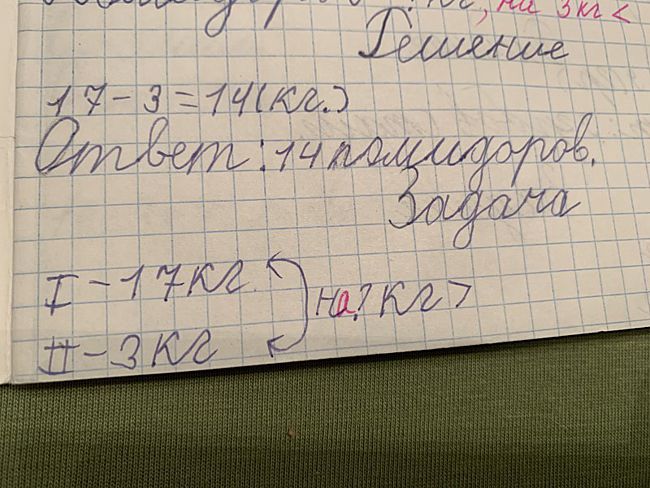 на 3кг<
Решение
17-3=14(кг.)
Ответ: 14 помидоров.
Задача
I - 17кг
на? кг >
II - 3кг